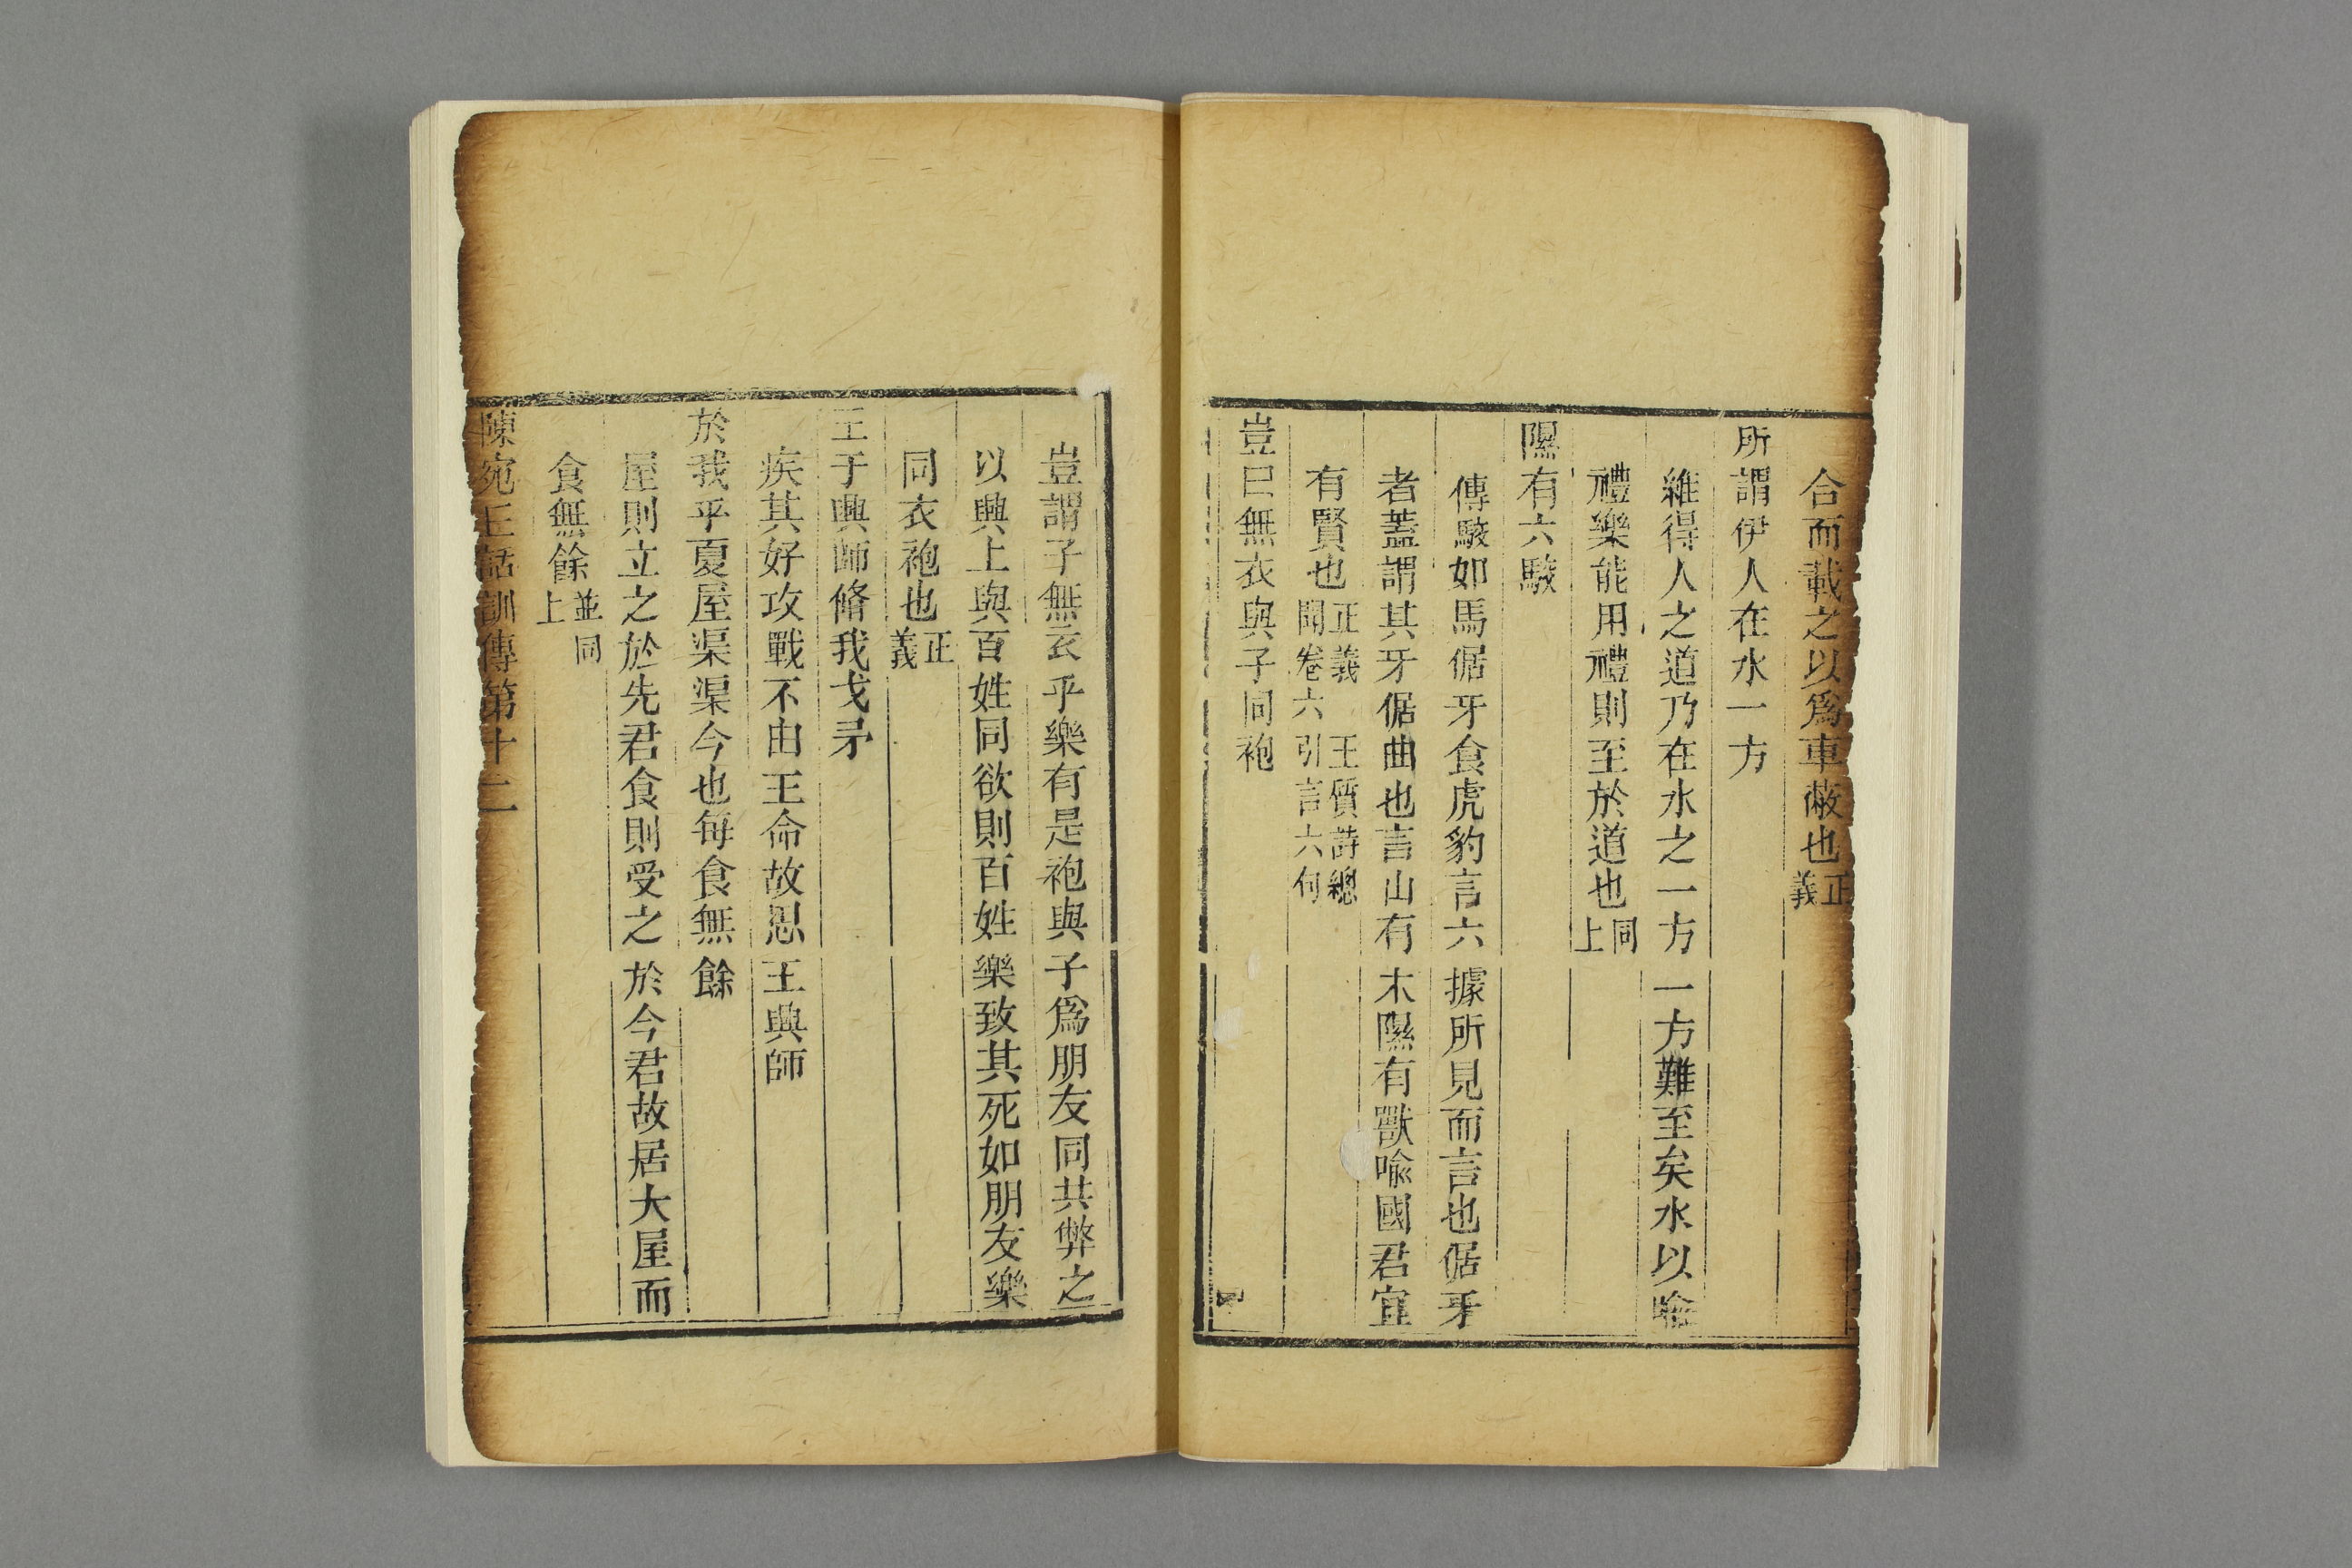 合而載之以爲車蔽也正義
所謂伊人在水一方
維得人之道乃在水之一方一方難至矣水以喻
禮樂能用禮則至於道也同上
隰有六駮
傳駮如馬倨牙食虎豹言六據所見而言也倨牙
者蓋謂其牙倨曲也言山有木隰有獸喻國君宜
有賢也正義 王質詩總聞卷六引言六句
豈曰無衣與子同袍
豈謂子無衣乎樂有是袍與子爲朋友同共弊之
以興上與百姓同欲則百姓樂致其死如朋友樂
同衣袍也正義
王于興師脩我戈矛
疾其好攻戰不由王命故思王興師
於我乎夏屋渠渠今也每食無餘
屋則立之於先君食則受之於今君故居大屋而
食無餘並同上
陳宛丘詁訓傳第十二